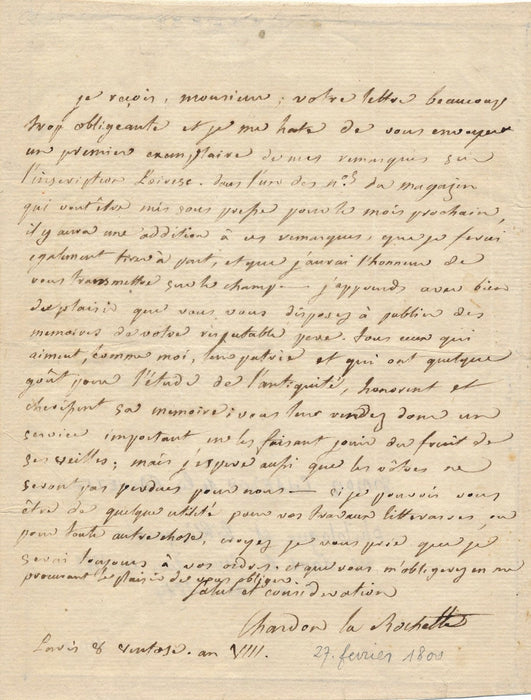 je reçois, monsieur, votre lettre beaucoup
trop obligeante et je me hate de vous envoyer
un premier exemplaire de mes remarques sur
l'inscription dans l'un des n.os du magazin
qui vont être mis sous presse pour le mois prochain,
il y aura une addition à ces remarques, que je ferai
egalement tirer à part, et que j'aurai l'honneur de
vous transmettre sur le champ — j'apprends avec bien
du plaisir que vous vous disposez à publier des
memoires de votre respectable pere. Tous ceux qui
aiment, comme moi, leur patrie et qui ont quelque
goût pour l'étude de l'antiquité, honorent et
cherissent sa memoire; vous leur rendez donc un
service important en les faisant jouir du fruit de
ses veilles; mais j'espere aussi que les vôtres ne
seront pas perdues pour nous — si je pouvois vous
être de quelque utilité pour vos travaux litteraires, ou
pour toute autre chose, croyez je vous prie que je
serai toujours à vos ordres et que vous m'obligerez en me
procurant le plaisir de vous obliger.
salut et consideration
Chardon la Rochette
8 ventose. an VIII. 27. fevrier 1800